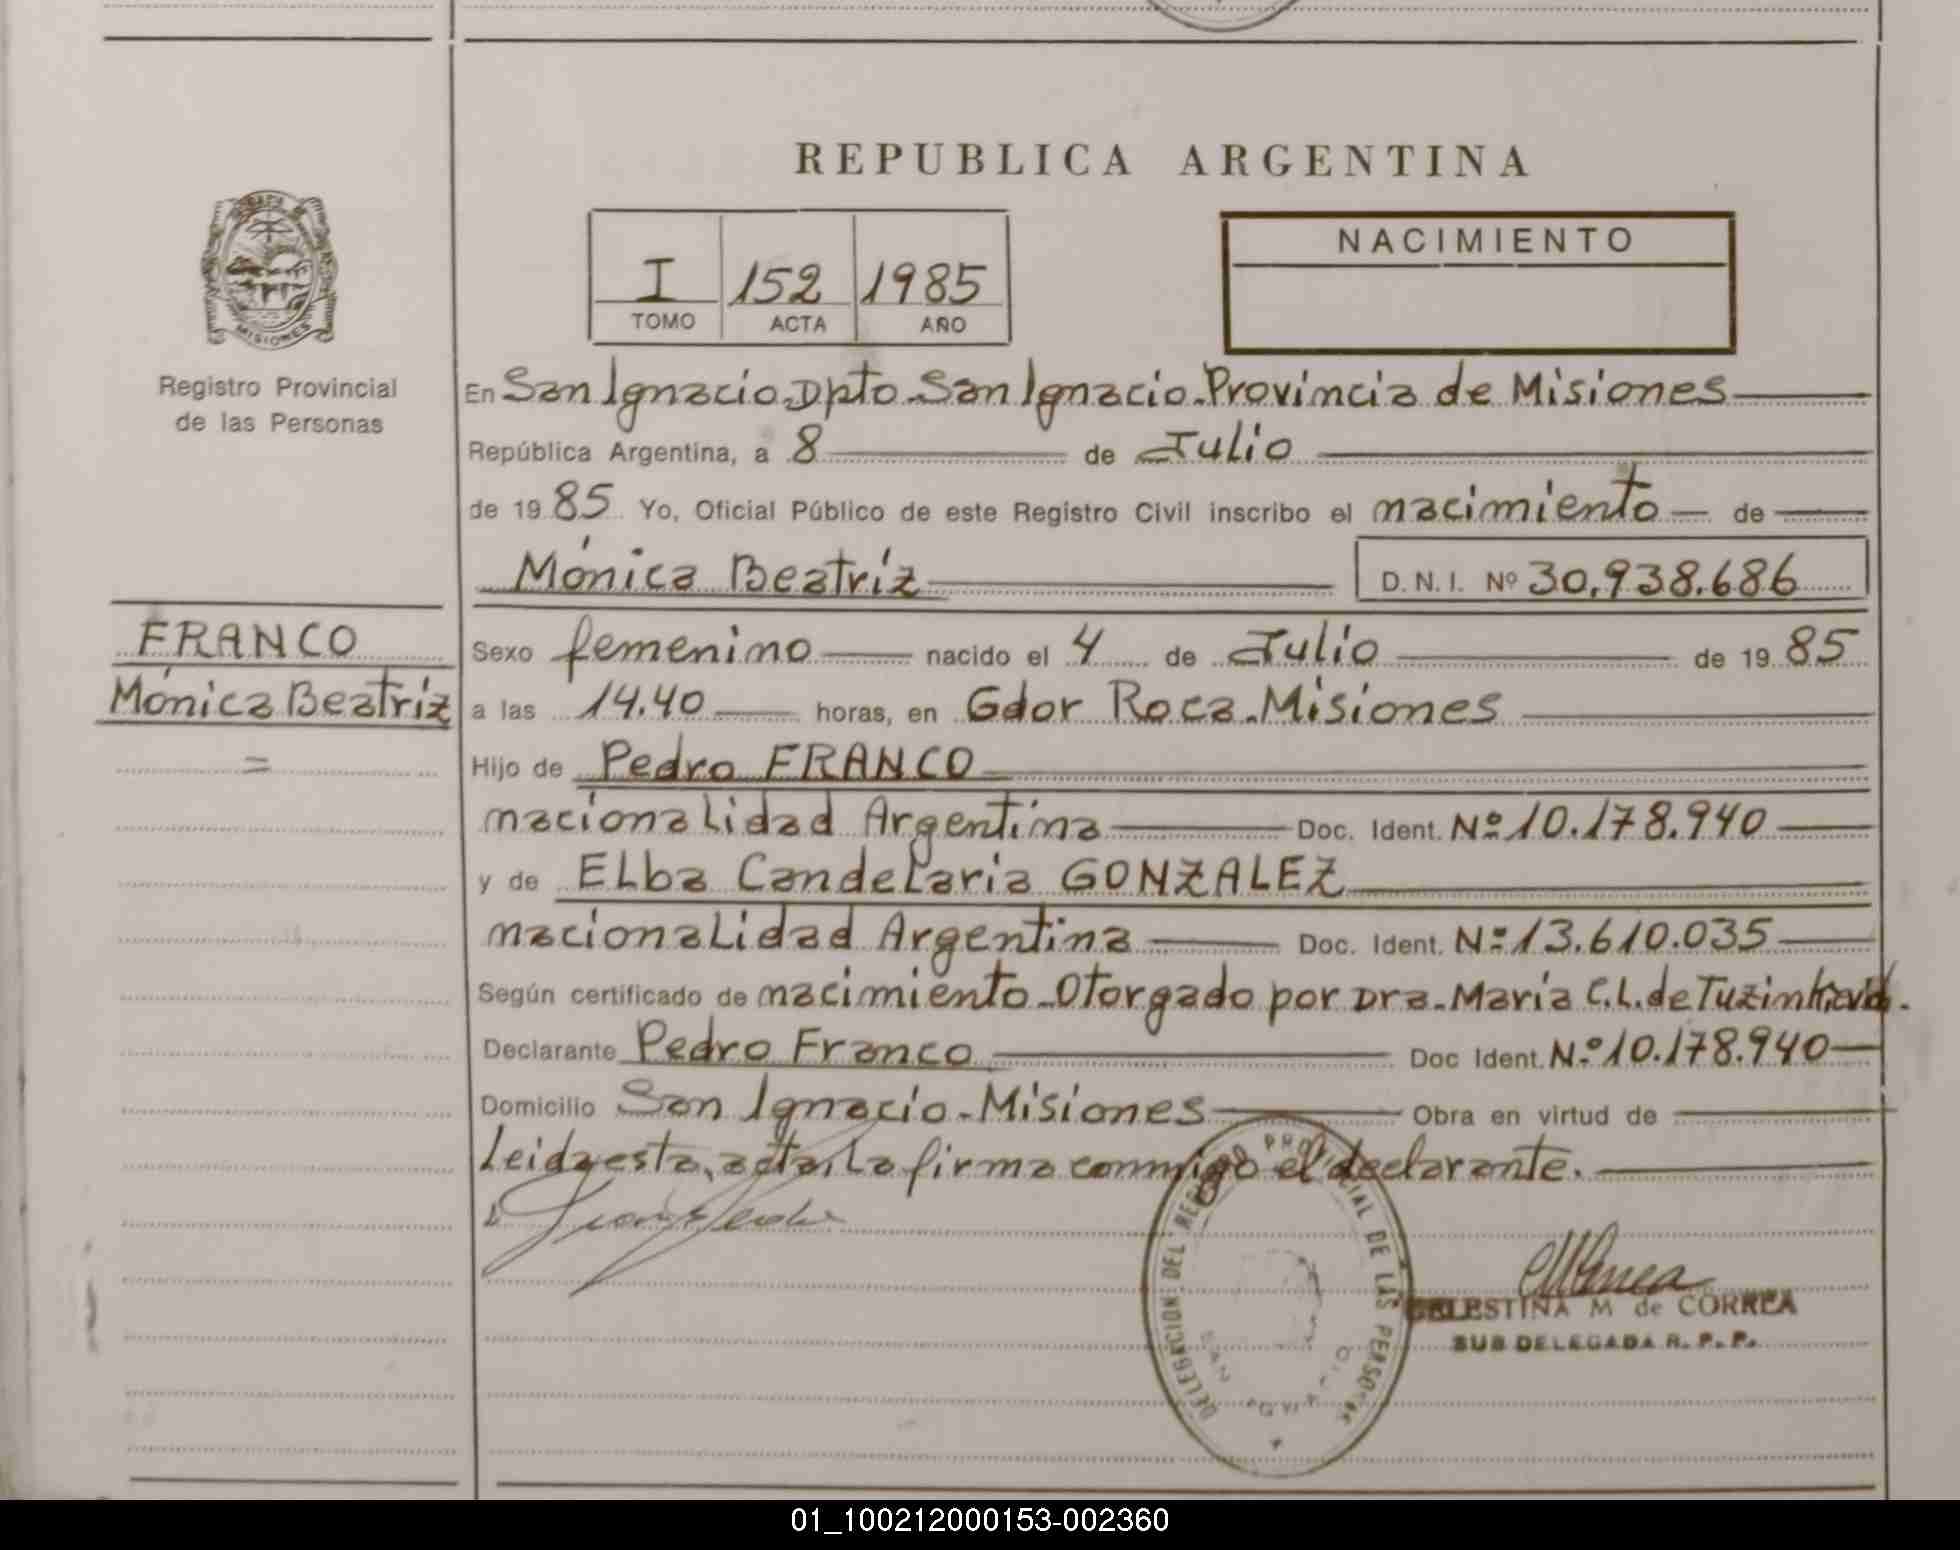 REPUBLICA ARGENTINA
MISIONES
Registro Provincial
de las Personas
I 152 1985
TOMO ACTA AÑO
NACIMIENTO
En San Ignacio, Dpto. San Ignacio. Provincia de Misiones
República Argentina, a 8 de Julio
de 1985 Yo, Oficial Público de este Registro Civil inscribo el nacimiento de
Mónica Beatríz D.N.I. Nº 30.938.686
FRANCO
Mónica Beatríz
=
Sexo femenino nacido el 4 de Julio de 1985
a las 14.40 horas, en Gdor Roca. Misiones
Hijo de Pedro FRANCO
nacionalidad Argentina Doc. Ident. Nº 10.178.940
y de ELba CandeLaria GONZALEZ
nacionaLidad Argentina Doc. Ident. Nº 13.610.035
Según certificado de nacimiento Otorgado por Dra. María C.L. de
Declarante Pedro Franco Doc Ident. N.º 10.178.940
Domicilio San Ignacio. Misiones Obra en virtud de
Leida esta, acta, La firma conmigo el declarante.
DELEGACION DEL REGISTRO PROVINCIAL DE LAS PERSONAS
SAN IGNACIO
CELESTINA M de CORREA
SUB DELEGADA R. P. P.
01_100212000153-002360